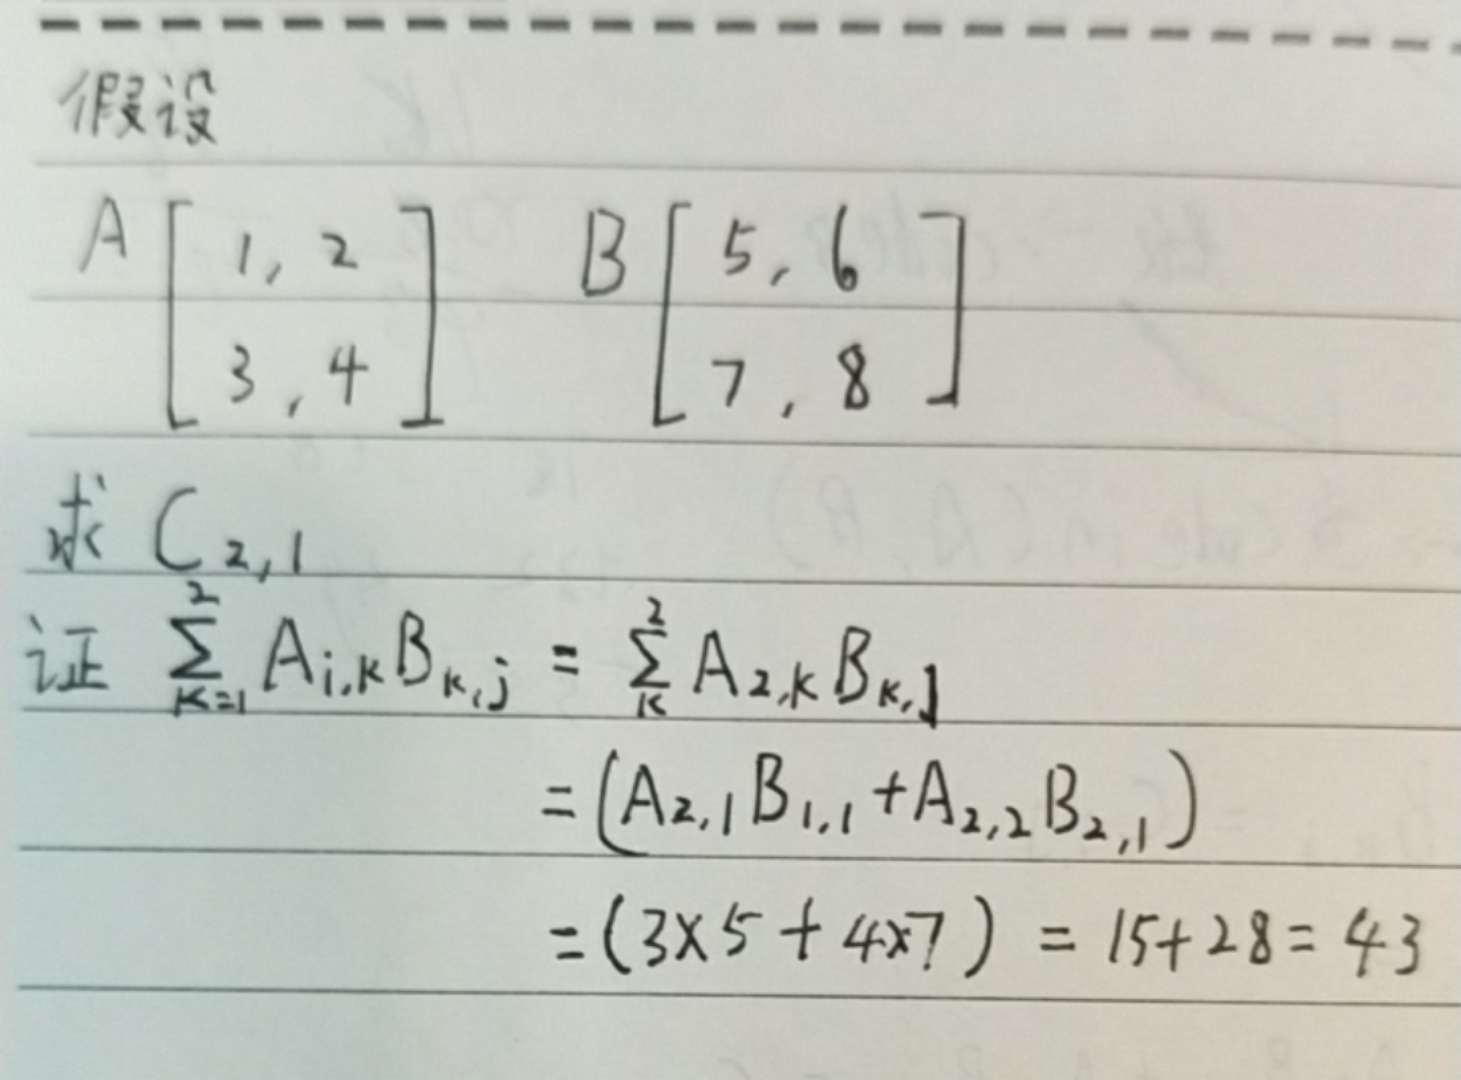 假设
A [ 1, 2   B [ 5, 6 ]
3, 4 ]   7, 8
求 C₂,₁
证 ∑_{K=1}^{2} A_{i,K} B_{K,j} = ∑_{K}^{2} A_{2,K} B_{K,1}
= (A_{2,1} B_{1,1} + A_{2,2} B_{2,1})
= (3×5 + 4×7) = 15+28 = 43